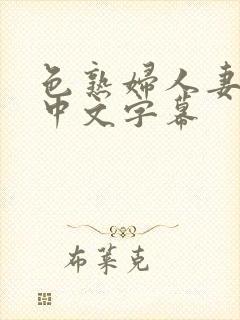 色熟婦人妻
中文字幕
布萊克